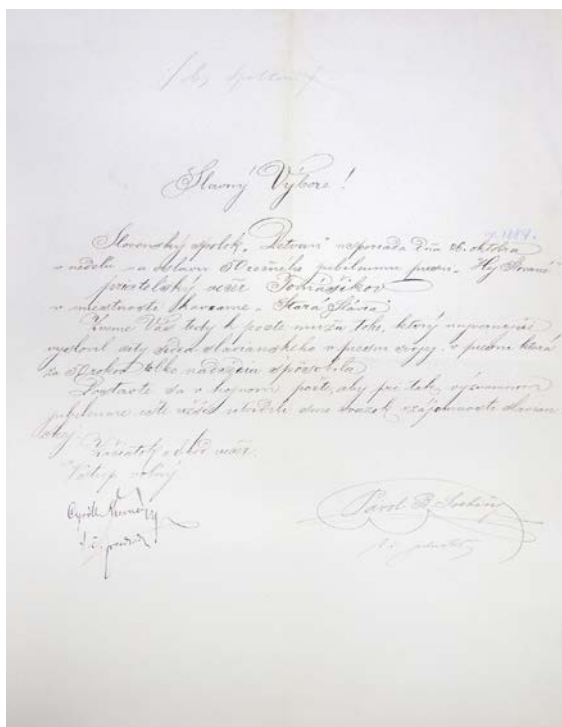 Slavný Výbore!
r. 1884.
Slovenský spolok „Detvan" usporiada dňa 26. oktobra
v nedelu na oslavu 50 ročného jubileumu piesne „Hej Slované"
priatelský večer Tomášikov
v miestnosti „Stará Sláva"
Zveme Vás tedy k pocte muža toho, ktorý najvernejšie
vyslovil city srdca slavianskeho v piesni svojej, v piesni ktorá
za 50 rokov tolko nadšenia spôsobila
Dostavte sa v hojnom počte, aby pri tak významnom
jubileume ešte užšie utvrdili sme sväzok vzájomnosti slavian
skej.
Začiatok o večer.
Vstup volný
Cyrill
t. č. predseda
Pavol B. Socháň
t. č.